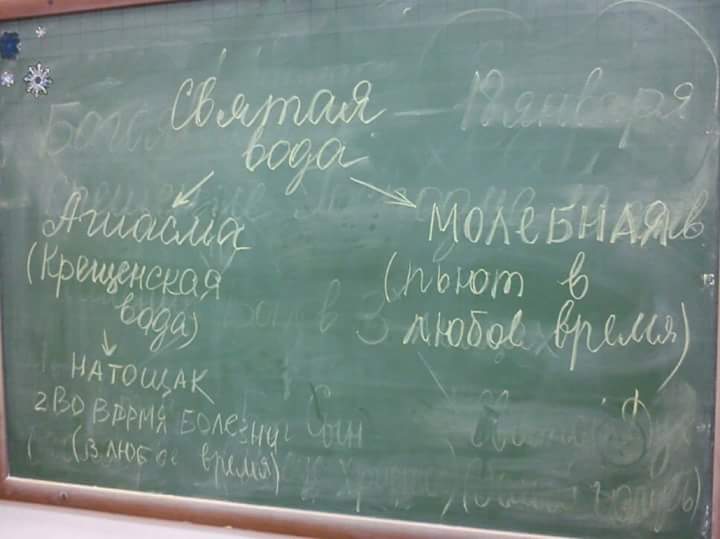 Святая
вода
Агиасма
(Крещенская
вода)
НАТОЩАК
2 ВО ВРЕМЯ БОЛЕЗНИ
(в любое время)
МОЛЕБНАЯ
(пьют в
любое время)
января
Сын